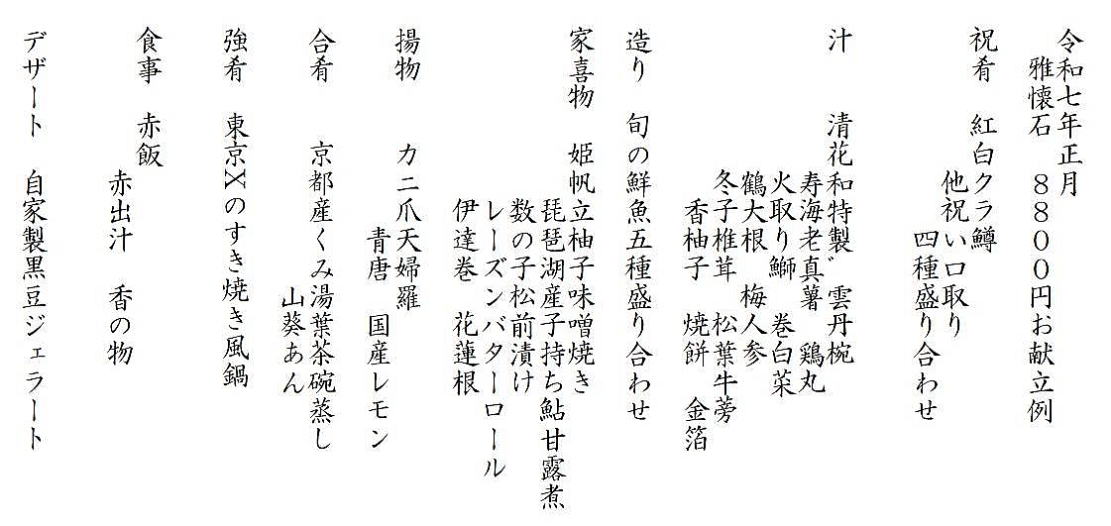 令和七年正月
雅懐石 8800円お献立例
祝肴 紅白クラ鱒
他祝い口取り
四種盛り合わせ
汁 清花和特製〝雲丹椀
寿海老真薯 鶏丸
火取り鰤 巻白菜
鶴大根 梅人参
冬子椎茸 松葉牛蒡
香柚子 焼餅 金箔
造り 旬の鮮魚五種盛り合わせ
家喜物 姫帆立柚子味噌焼き
琵琶湖産子持ち鮎甘露煮
数の子松前漬け
レーズンバターロール
伊達巻 花蓮根
揚物 カニ爪天婦羅
青唐 国産レモン
合肴 京都産くみ湯葉茶碗蒸し
山葵あん
強肴 東京Xのすき焼き風鍋
食事 赤飯
赤出汁 香の物
デザート 自家製黒豆ジェラート